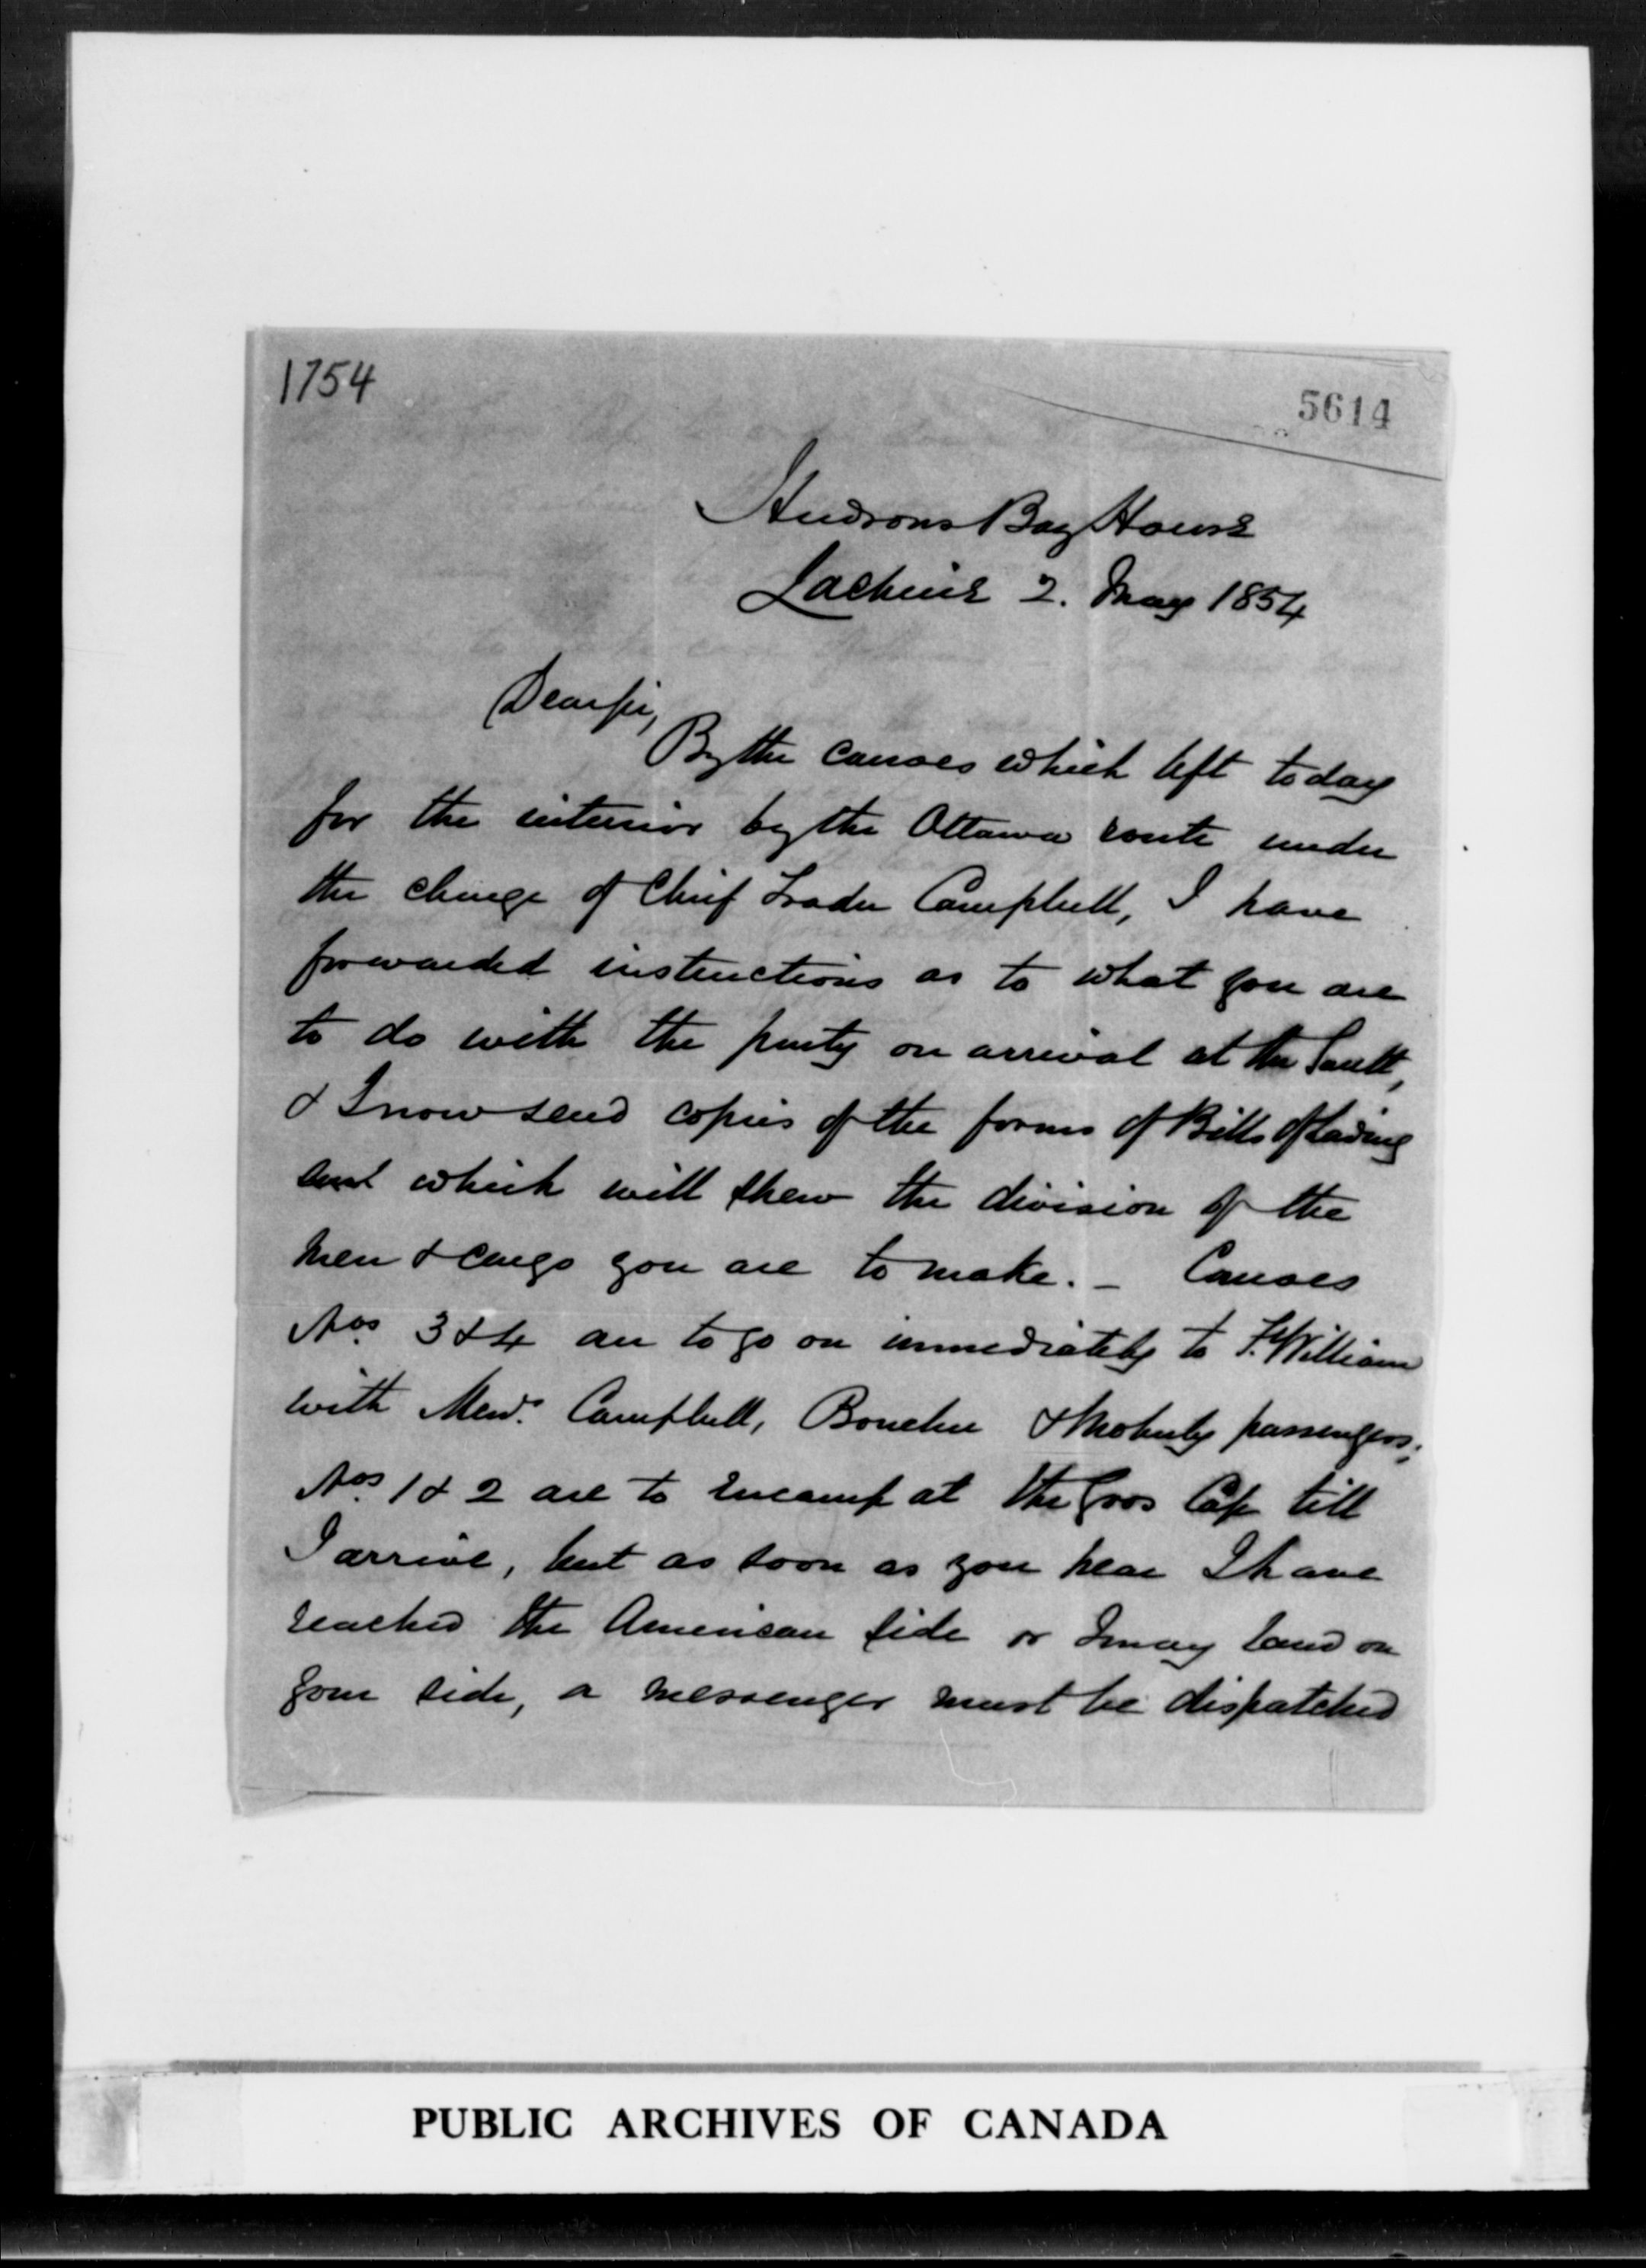 1754
5614
Hudsons Bay House
Lachine 2. May 1854
Dear Sir,
By the canoes which left today
for the interior by the Ottawa route under
the charge of Chief Trader Campbell, I have
forwarded instructions as to what you are
to do with the party on arrival at the Sault,
& I now send copies of the forms of Bills of Lading
which will shew the division of the
men & cargo you are to make. _ Canoes
Nos. 3 & 4 are to go on immediately to Ft. William
with Messrs. Campbell, Boucher & Moberly passengers;
Nos. 1 & 2 are to encamp at the Gros Cap till
I arrive, but as soon as you hear I have
reached the American side or I may land on
your side, a messenger must be dispatched
PUBLIC ARCHIVES OF CANADA